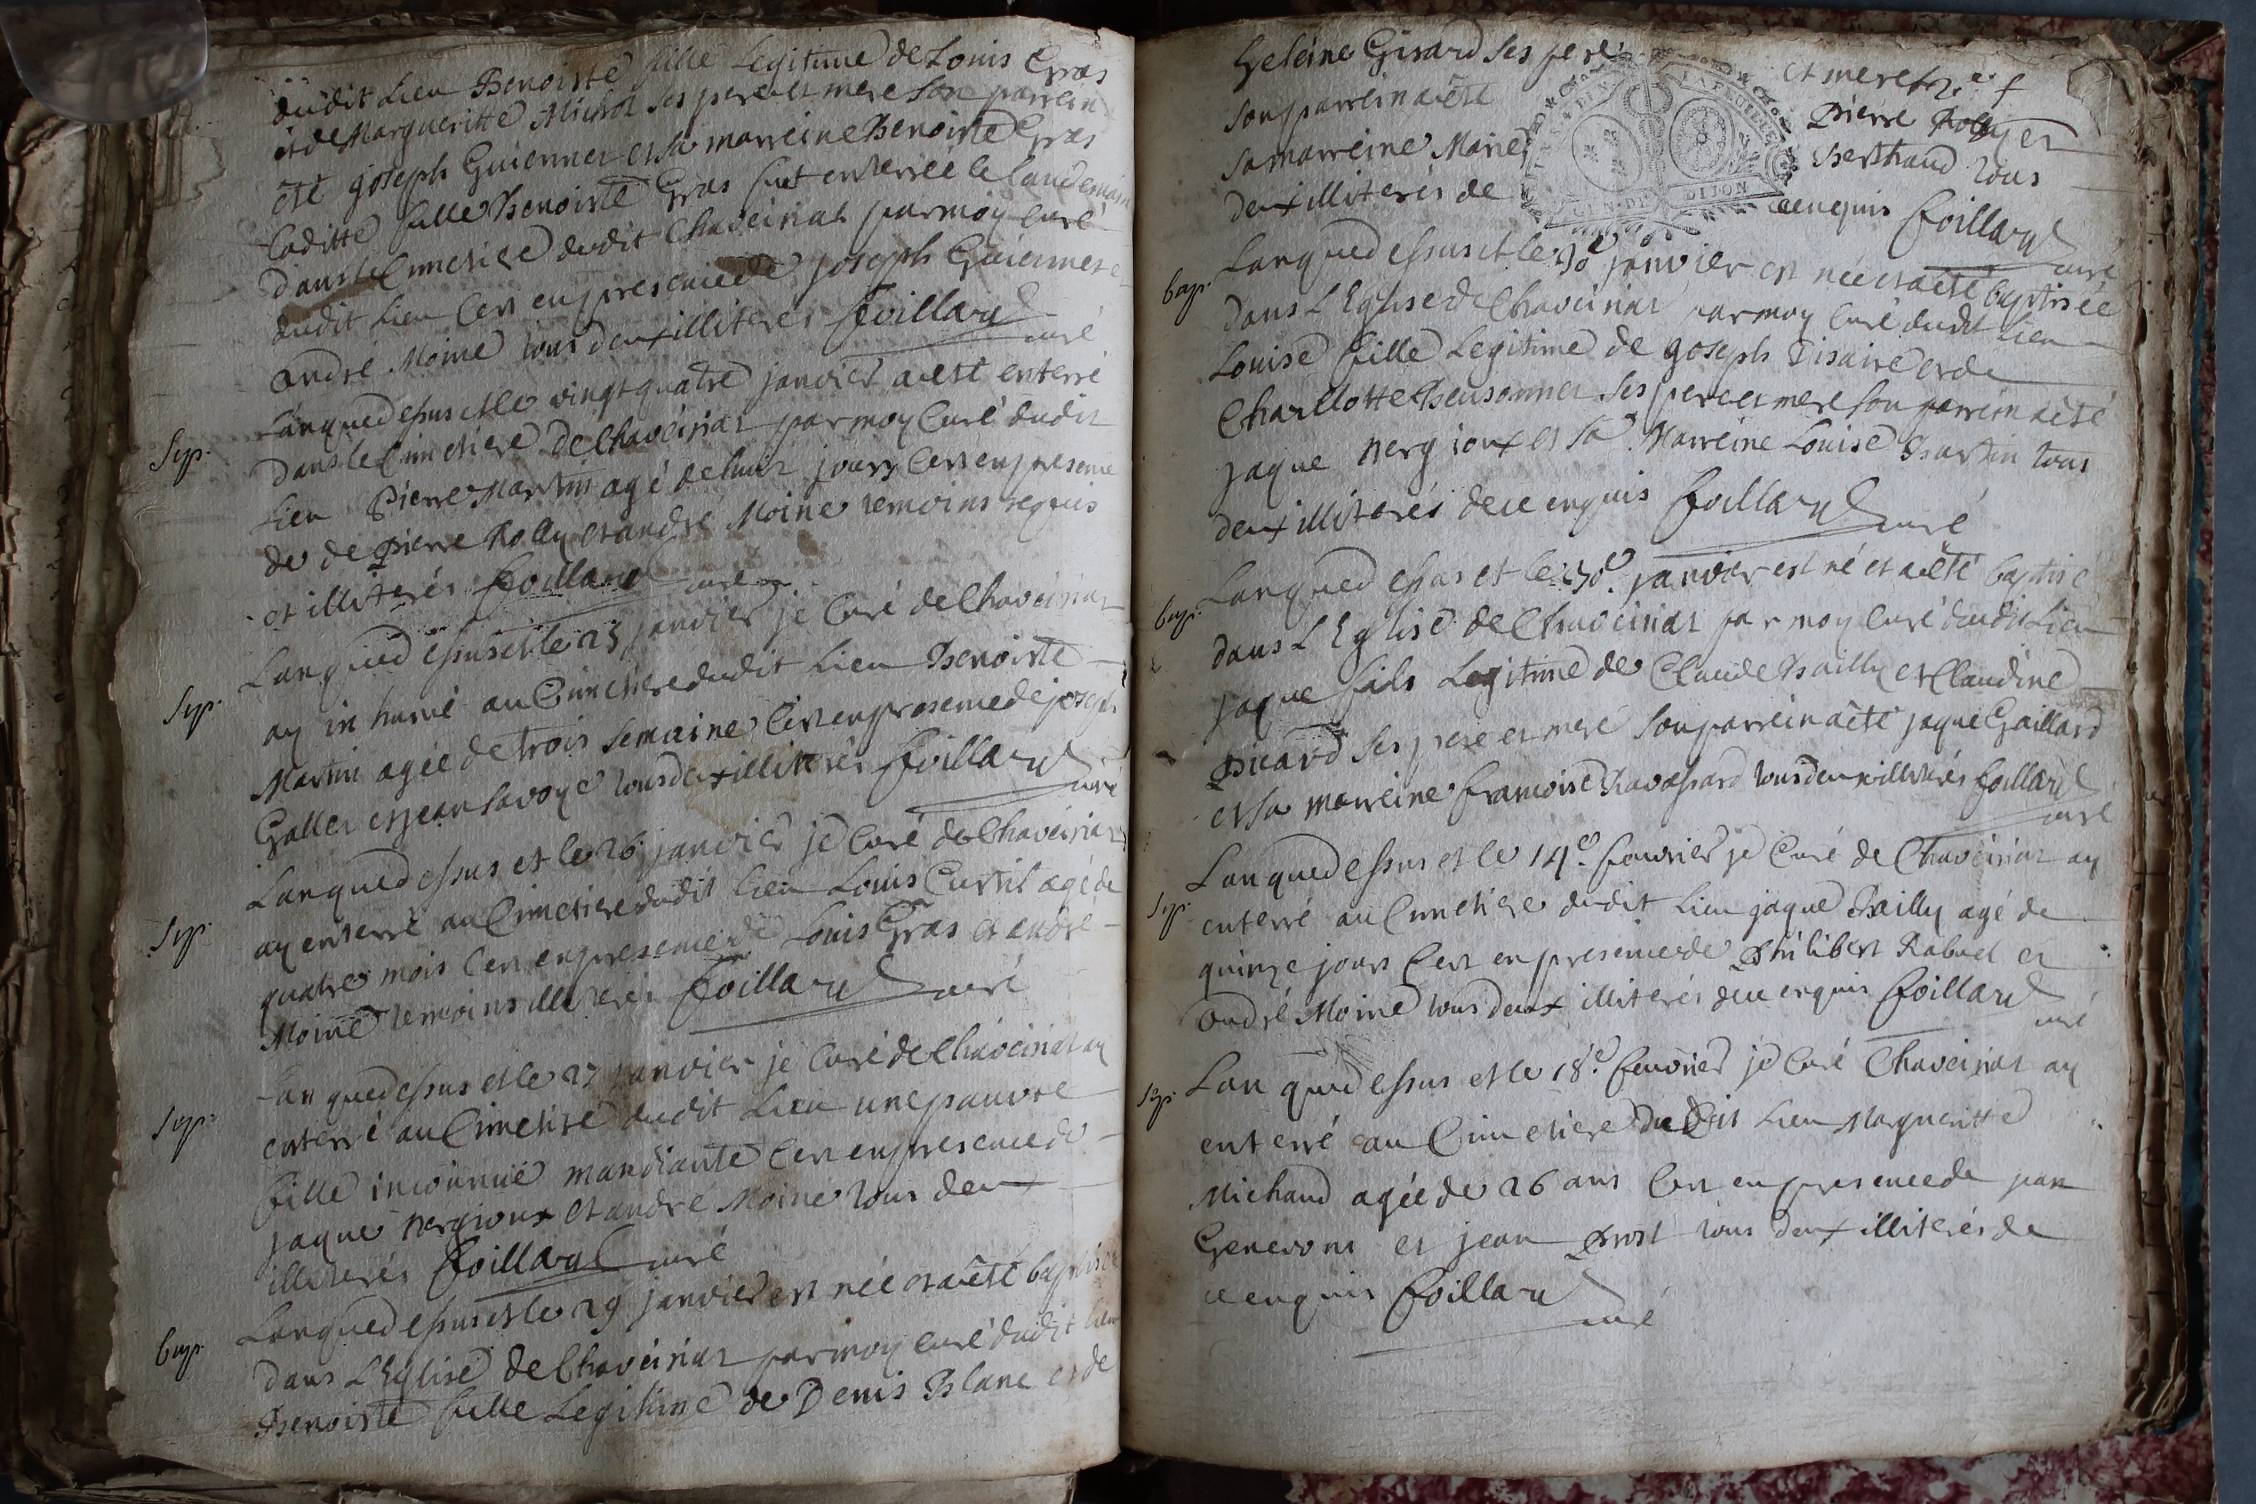 dudit Lieu Benoiste fille Legitime de Louis Gras
et de Margueritte Michol ses pere et mere son parrein
été joseph Guiennet et sa marreine Benoiste Gras
Laditte fille Benoiste Gras fut enterrée le landemain
dans le Cimetiere dudit Chaveiriat par moy Curé
dudit Lieu Cert en presence de joseph Guiennet et
andré Moine tous deux illiterés Foillard
curé
Sep. Lan que dessus et le vingt quatre janvier a été enterré
dans le Cimetiere de Chaveiriat par moy Curé dudit
Lieu Pierre Martin agé de huit jours Cert en presence
de de Pierre Rolly et andré Moine temoins requis
et illiterés Foillard curé
Sep. Lan que dessus et le 25 janvier je Curé de Chaveiriat
ay in humé au Cimetiere dudit Lieu Benoiste
Martin agée de trois semaine Cert en presence de joseph
Gallet et jean Savoye tous deux illiterés Foillard
curé
Sep. Lan que dessus et le 26 janvier je Curé de Chaveiriat
ay enterré au Cimetiere dudit lieu Louis Curtil agé de
quatre mois Cert en presence de Louis Gras et andré
Moine temoins illiterés Foillard curé
Sep. Lan que dessus et le 27 janvier je Curé de Chaveiriat ay
enterré au Cimetire dudit Lieu une pauvre
fille inconnue mandiante Cert en presence de
jaque Nergioux et andré Moine tous deux
illiterés Foillard curé
bap. Lan que dessus et le 29 janvier est née et a été baptisée
dans L'Eglise de Chaveiriat par moy Curé dudit lieu
Benoiste fille Legitime de Denis Blanc et de
Heleine Girard ses pere et mere
son parrein a été Pierre Rolly et
sa marreine Marie Berthaud tous
deux illiterés de ce enquis Foillard
curé
GEN DE DIJON
bap. Lan que dessus et le 30e janvier est née et a été baptisée
dans L'Eglise de Chaveiriat par moy Curé dudit Lieu
Louise fille Legitime de joseph Disaire et de
Charllotte Beusonnet ses pere et mere son parrein a été
jaque Nergioux et sa Marreine Louise Martin tous
deux illiterés de ce enquis Foillard curé
bap. Lan que dessus et le 30e janvier est né et a été baptisé
dans L'Eglise de Chaveiriat par moy Curé dudit Lieu
jaque fils Legitime de Claude Bailly et Claudine
Picard ses pere et mere son parrein a été jaque Gaillard
et sa marreine francoise Ravassard tous deux illiterés Foillard
curé
Sep. Lan que dessus et le 14e fevrier je Curé de Chaveiriat ay
enterré au Cimetiere dudit Lieu jaque Bailly agé de
quinze jours Cert en presence de Philibert Rabuel et
andré Moine tous deux illiterés de ce enquis Foillard
curé
Sep. Lan que dessus et le 18e fevrier je Curé Chaveiriat ay
enterré au Cimetiere dudit Lieu Margueritte
Michaud agée de 26 ans Cert en presence de jean
et jean Prost tous deux illiterés de
ce enquis Foillard
curé